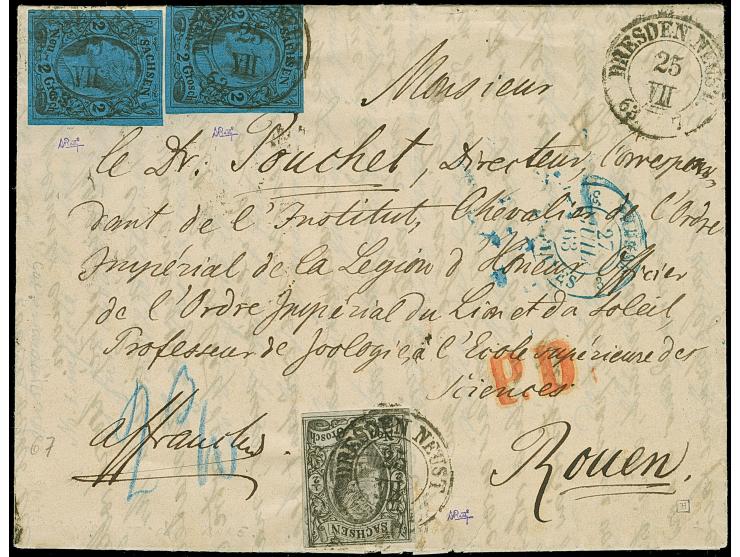 SACHSEN
2
Neu-Grosch.
SACHSEN
2
Neu-Grosch.
DRESDEN NEUST.
25
VII
63
DRESDEN NEUST.
25
VII
63
Monsieur
le Dr. Pouchet, Directeur, Correspon-
dant de l'Institut, Chevalier de l'Ordre
Impérial de la Legion d'Honeur, Officier
de l'Ordre Impérial du Lion et du Soleil,
Professeur de Zoologie, à l'Ecole supérieure des
Sciences
27
63
P.D.
affranchie.
Rouen.
67
DRESDEN NEUST.
VII
SACHSEN